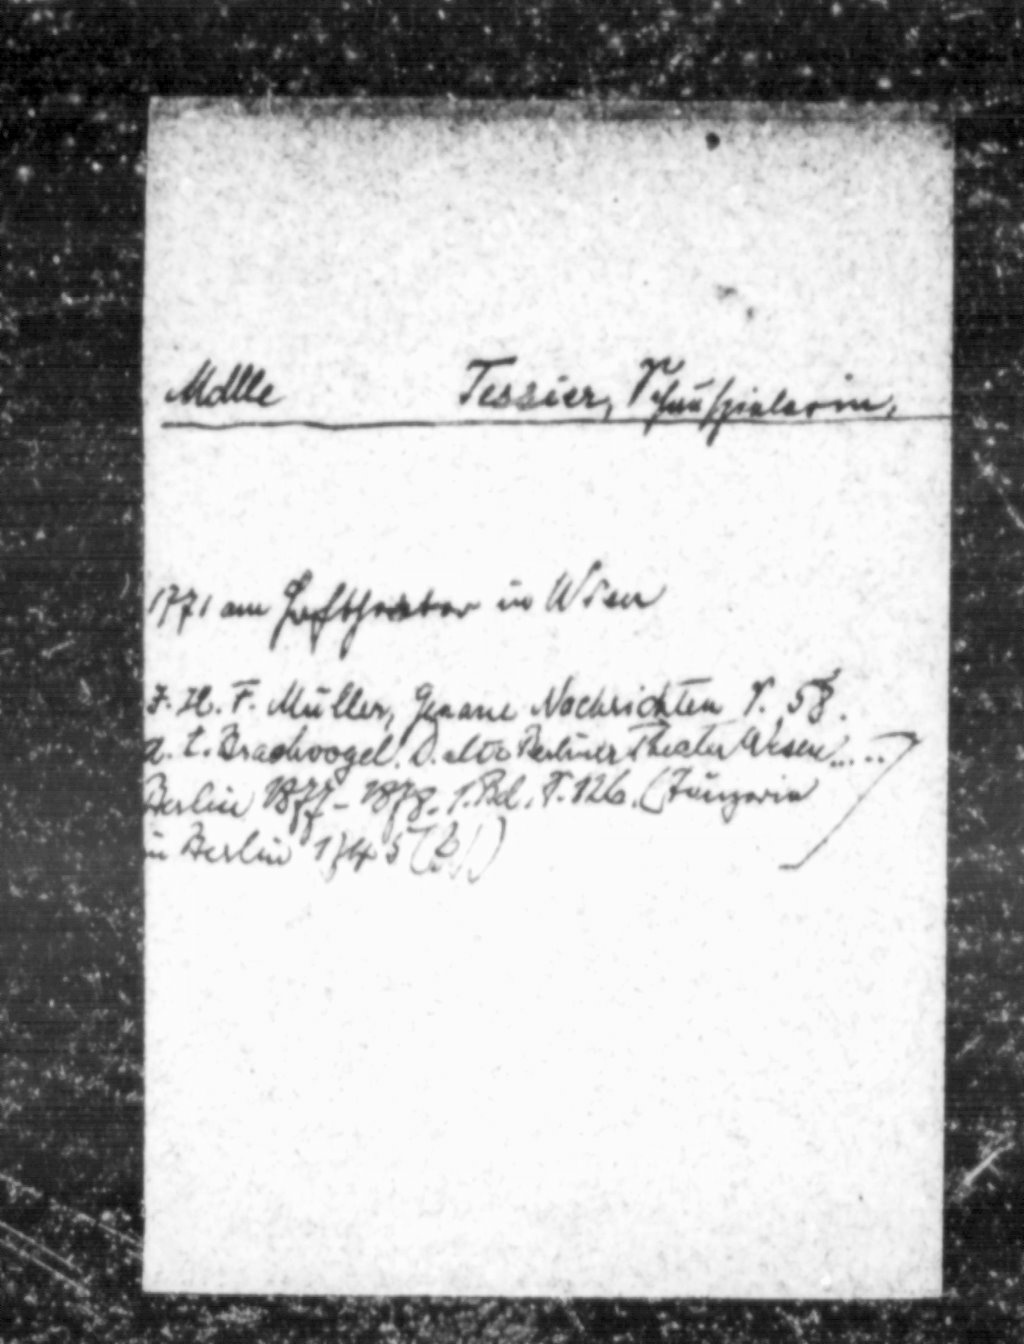 Mdlle Tessier, Schauspielerin.
1771 am Hoftheater in Wien
J. H. F. Müller, Genaue Nachrichten S. 58.
A. E. Brachvogel. D. alte Berliner Theater Wesen.....
Berlin 1877-1878. 1. Bd. S. 126. (Tänzerin
in Berlin 1745 (?!)